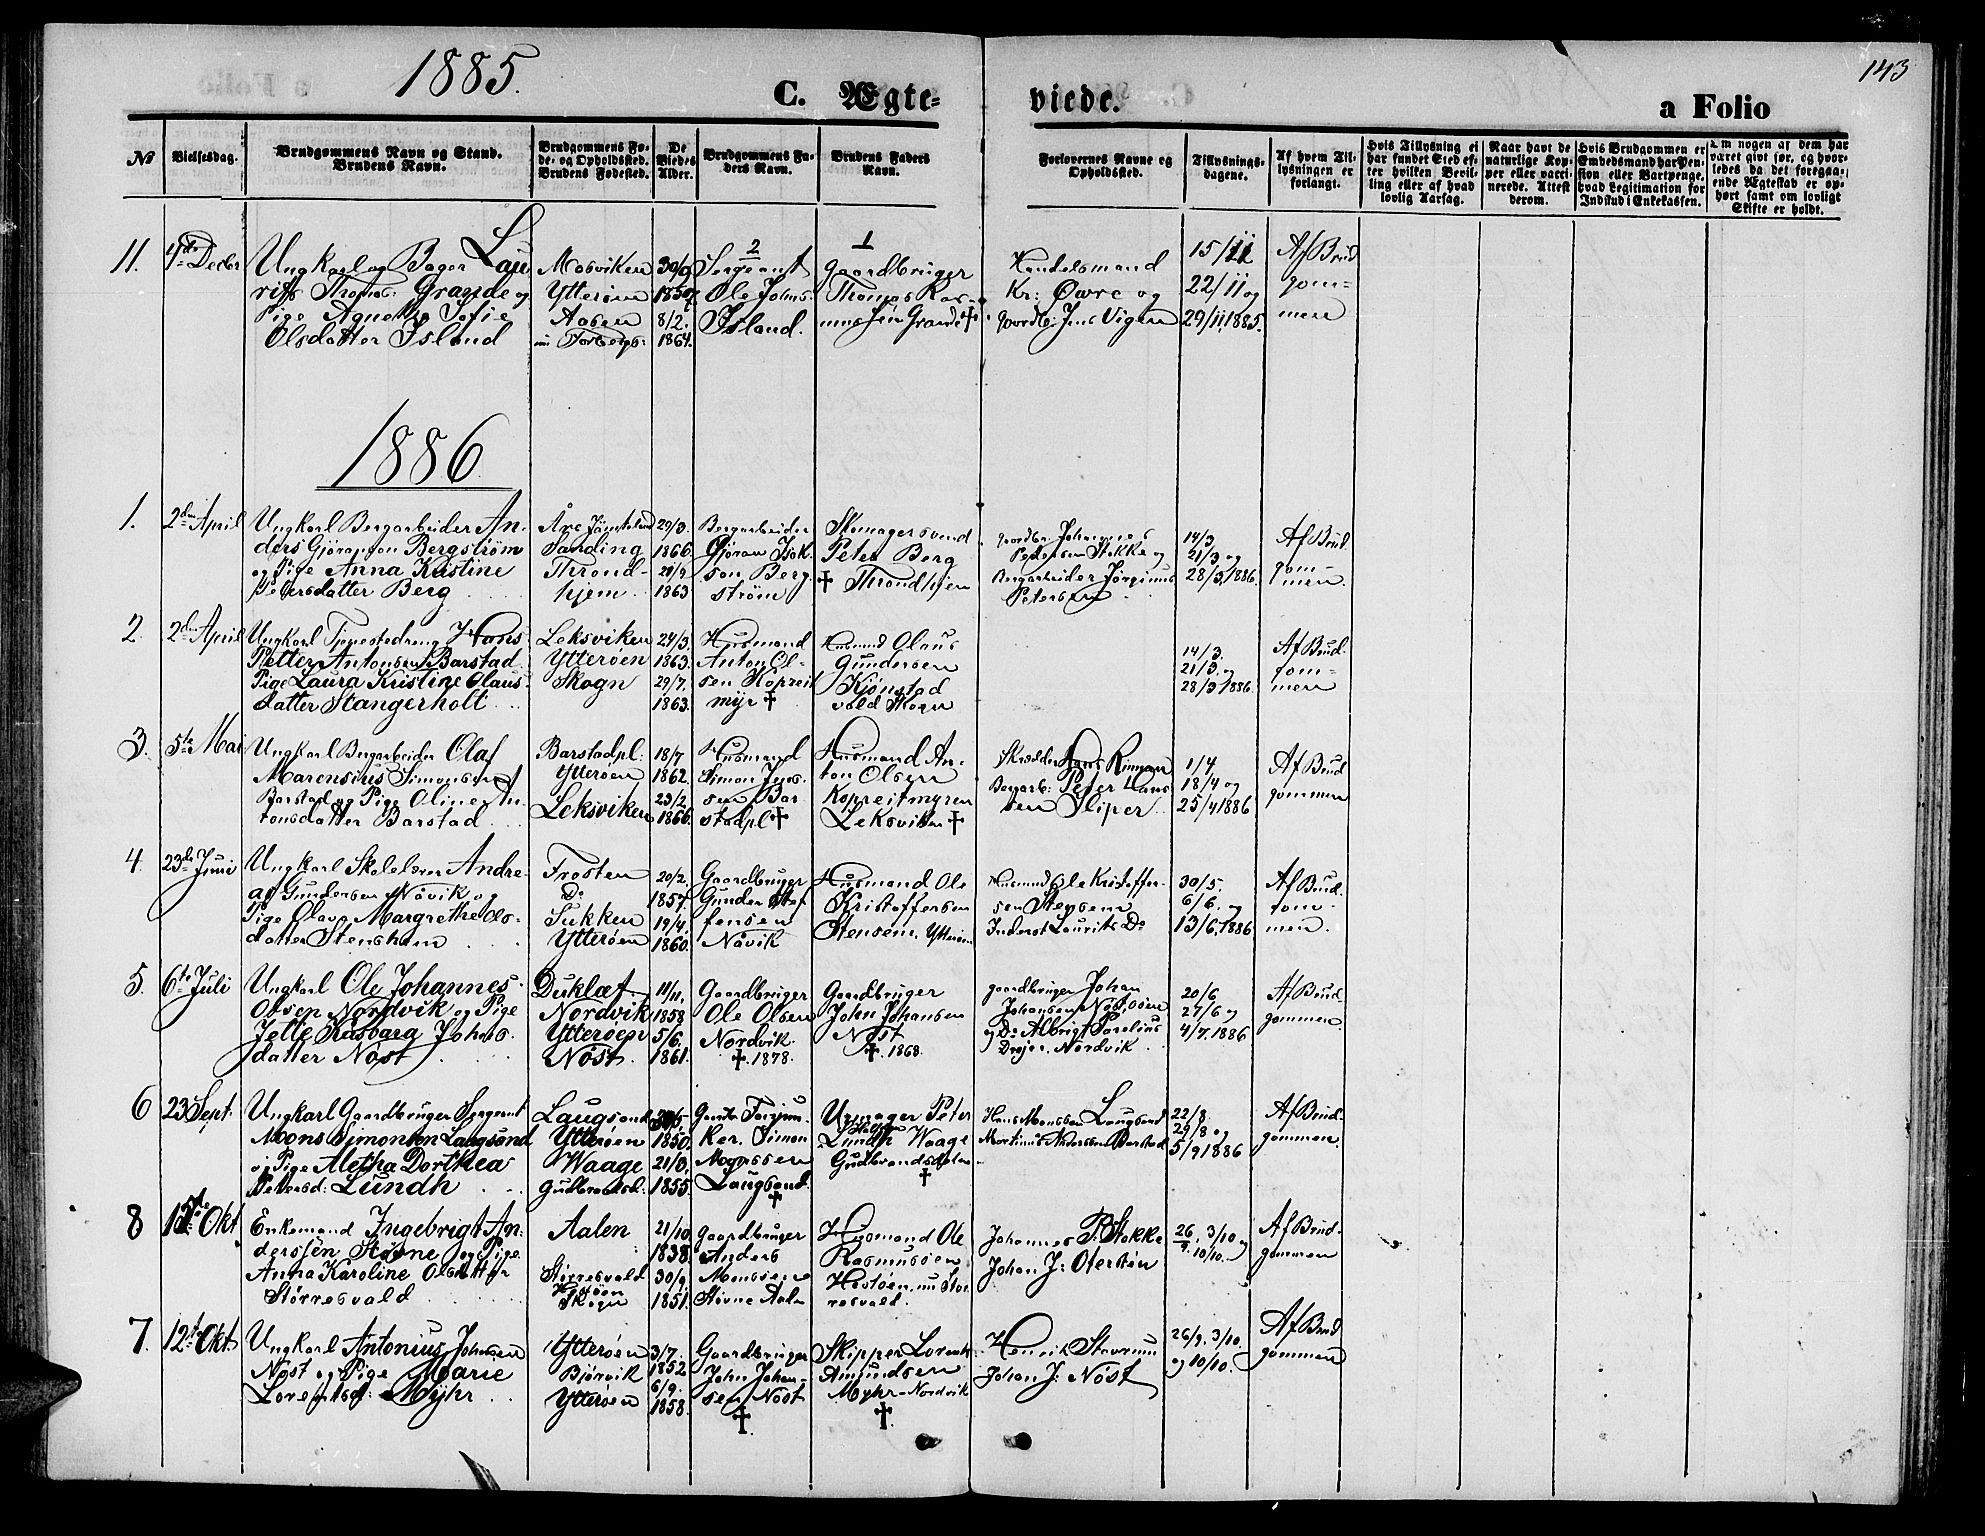 1885.
143
C. Ægte-
viede.
a Folio
No
Vielsesdag.
Brudgommens Navn og Stand.
Brudens Navn.
Brudgommens Fø-
de- og Opholdssted.
Brudens Fødested.
De
Viedes
Alder.
Brudgommens Fa-
ders Navn.
Brudens Faders
Navn.
Forlovernes Navne og
Opholdssted.
Tillysnings-
dagene.
Af hvem Til-
lysningen er
forlangt.
Hvis Tillysning ei
har fundet Sted ef-
ter hvilken Bevil-
ling eller af hvad
lovlig Aarsag.
Naar havt de
naturlige Kop-
per eller vacci-
nerede. Attest
derom.
Hvis Brudgommen er
Embedsmand har Pen-
sion eller Vartpenge,
hvad Legitimation for
Indskud i Enkekassen.
Om nogen af dem har
været gift før, og hvor-
ledes da det foregaa-
ende Ægteskab er op-
hørt samt om lovligt
Skifte er holdt.
11.
4de Decbr
Ungkarl og Bager Lau
rits Thoms: Grande og
Pige Agnethe Sofie
Olsdatter Island
Mosviken
Ytterøen
Aasen
30/9
1859
8/2.
1864.
2
Sergeant
Ole Johns:
Island.
1
Gaardbruger
Thomas Ras-
mussen Grande †
Handelsmand
Kr: Øvre og
Gaardb: Jens Vigen
15/11
22/11 og
29/11 1885.
Af Brud
gom-
mere
1886
1.
2den April
Ungkarl Bergarbeider An-
ders Gjöransson Bergström
og Pige Anna Kristine
Petersdatter Berg
Åre Jämteland
Throndhjem
29/3.
1866.
21/9
1863
Bergarbeider
Gjöran Isak
son Berg
ström
Skomagersvend
Peter Berg
† Throndhjem
Gaardbr. Johannes
Pedersen Stokke og
Bergarbeider Jørginus
Petersen
14/3
21/3 og
28/3, 1886.
Af Brud
gom-
men.
2.
2den April
Ungkarl Tjenestedreng Hans
Petter Antonsen Barstad
Pige Laura Kristine Olaus-
datter Stangerholt
Leksviken
Ytterøen
Skogn
24/3.
1863.
29/7.
1863.
Husmand
Anton Ol-
sen Kopreit
myr †
Husmand Olaus
Gundersen
Kjønstad
vald Skogn
14/3.
21/3 og
28/3 1886.
Af Brud
gom-
men
3.
5te Mai
Ungkarl Bergarbeider Olaf
Marensius Simonsen
Barstad og Pige Oline An
tonsdatter Barstad
Barstadpl:
Ytterøen
Leksviken
18/7
1862.
23/2.
1866.
Husmand
Simon Jens-
sen Bar
stadpl †
Husmand An-
ton Olsen
Kopreitmyren
Leksviken †
Skrædder Hans Rinnan
Bergarb: Peter Hans
sen Sliper
1/4
18/4 og
25/4 1886
Af Brud
gommen
4.
23de Juni
Ungkarl Skolelærer Andre-
as Gundersen Nåvik og
Pige Olava Margrethe Ols-
datter Stensheim
Frosten
Do
Sukken
Ytterøen
20/2.
1857.
19/4.
1860.
Gaardbruger
Gunder Stef
fensen
Nåvik
Husmand Ole
Kristoffersen
Stensem. Ytterøen
Husmand Ole Kristoffer-
sen Stensem
Inderst Laurits Do
30/5.
6/6. og
13/6, 1886
Af Brud
gom-
men.
5.
6te Juli
Ungkarl Ole Johannes
Olsen Nordvik og Pige
Jelle Kasbara Johns-
datter Nøst
Nordvik
Ytterøen
Nøst.
11/11.
1858
5/6.
1861.
Gaardbruger
Ole Olsen
Nordvik
†. 1878.
Gaardbruger
John Johansen
Nøst
†. 1868.
Gaardbruger Johan
Johansen Nøst, og
og Do Albrigt Parelius
Drejer. Nordvik
20/6
27/6 og
4/7. 1886
Af Brud
gommen
6
23 Sept.
Ungkarl Gaardbruger Sergeant
Mons Simonsen Laugsand
og Pige Aletha Dorthea
Petersd: Lundh
Laugsand
Ytterøen
Waage
Gudbrandsd.
1850.
21/3.
1855.
Simon
Monssen
Laugsand
†
Urmager Peter
Lundh Waage
Gudbrandsdalen
†
Hans Monssen Laugsand
Martinus Andersen Barstad
22/8.
29/8 og
5/9 1886
Af Brud
gommen.
8
12te Okt
Enkemand Ingebrigt An-
derssen Støvne og Pige
Anna Karoline Olsdatter
Størresvald
Aalen
Størresvald
Skogn
21/10
1838.
30/9.
1851.
Gaardbruger
Anders
Monssen
Støvne Aalen
Husmand Ole
Rasmussen
Hestøen, nu Stør
resvald.
Johannes P. Stokke
Johan J: Oterstein
26/9. 3/10 og
10/10.
Af Brud-
gommen
7.
12te Okt
Ungkarl Antonius Johnsen
Nøst og Pige Marie
Lorentsd: Myhr
Ytterøen
Bjørvik
Ytterøen
3/7.
1852
6/9.
1858.
Gaardbruger
John Johan-
sen Nøst
†
Skipper Lorents
Amundsen
Myhr-Nordvik
†
Henrik Stavrum
Johan J: Nøst
26/9. 3/10.
og 10/10.
Af Brud
gommen